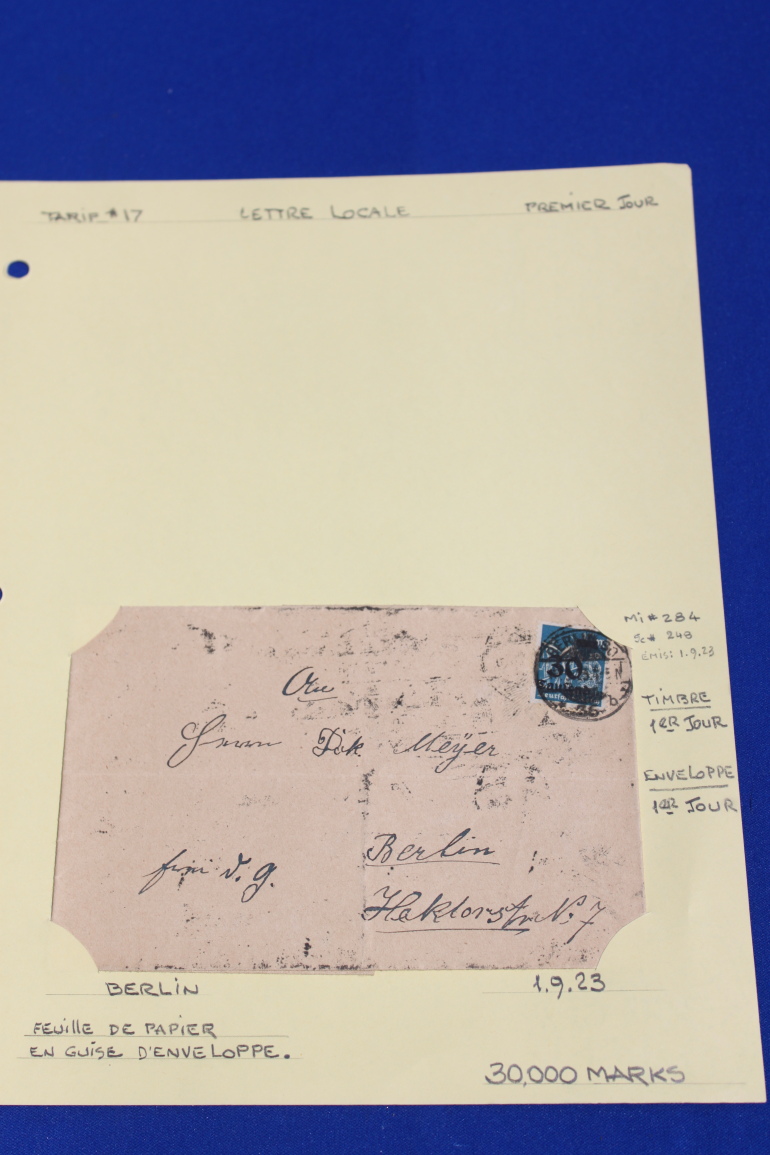 TARIF # 17 LETTRE LOCALE PREMIER JOUR
Mi # 284
Sc # 249
ÉMIS: 1.9.23
TIMBRE
1ER JOUR
ENVELOPPE
1ER JOUR
30
An
Herrn Meyer
Berlin
Hektorstr. N. 7
BERLIN 1.9.23
FEUILLE DE PAPIER
EN GUISE D'ENVELOPPE.
30,000 MARKS